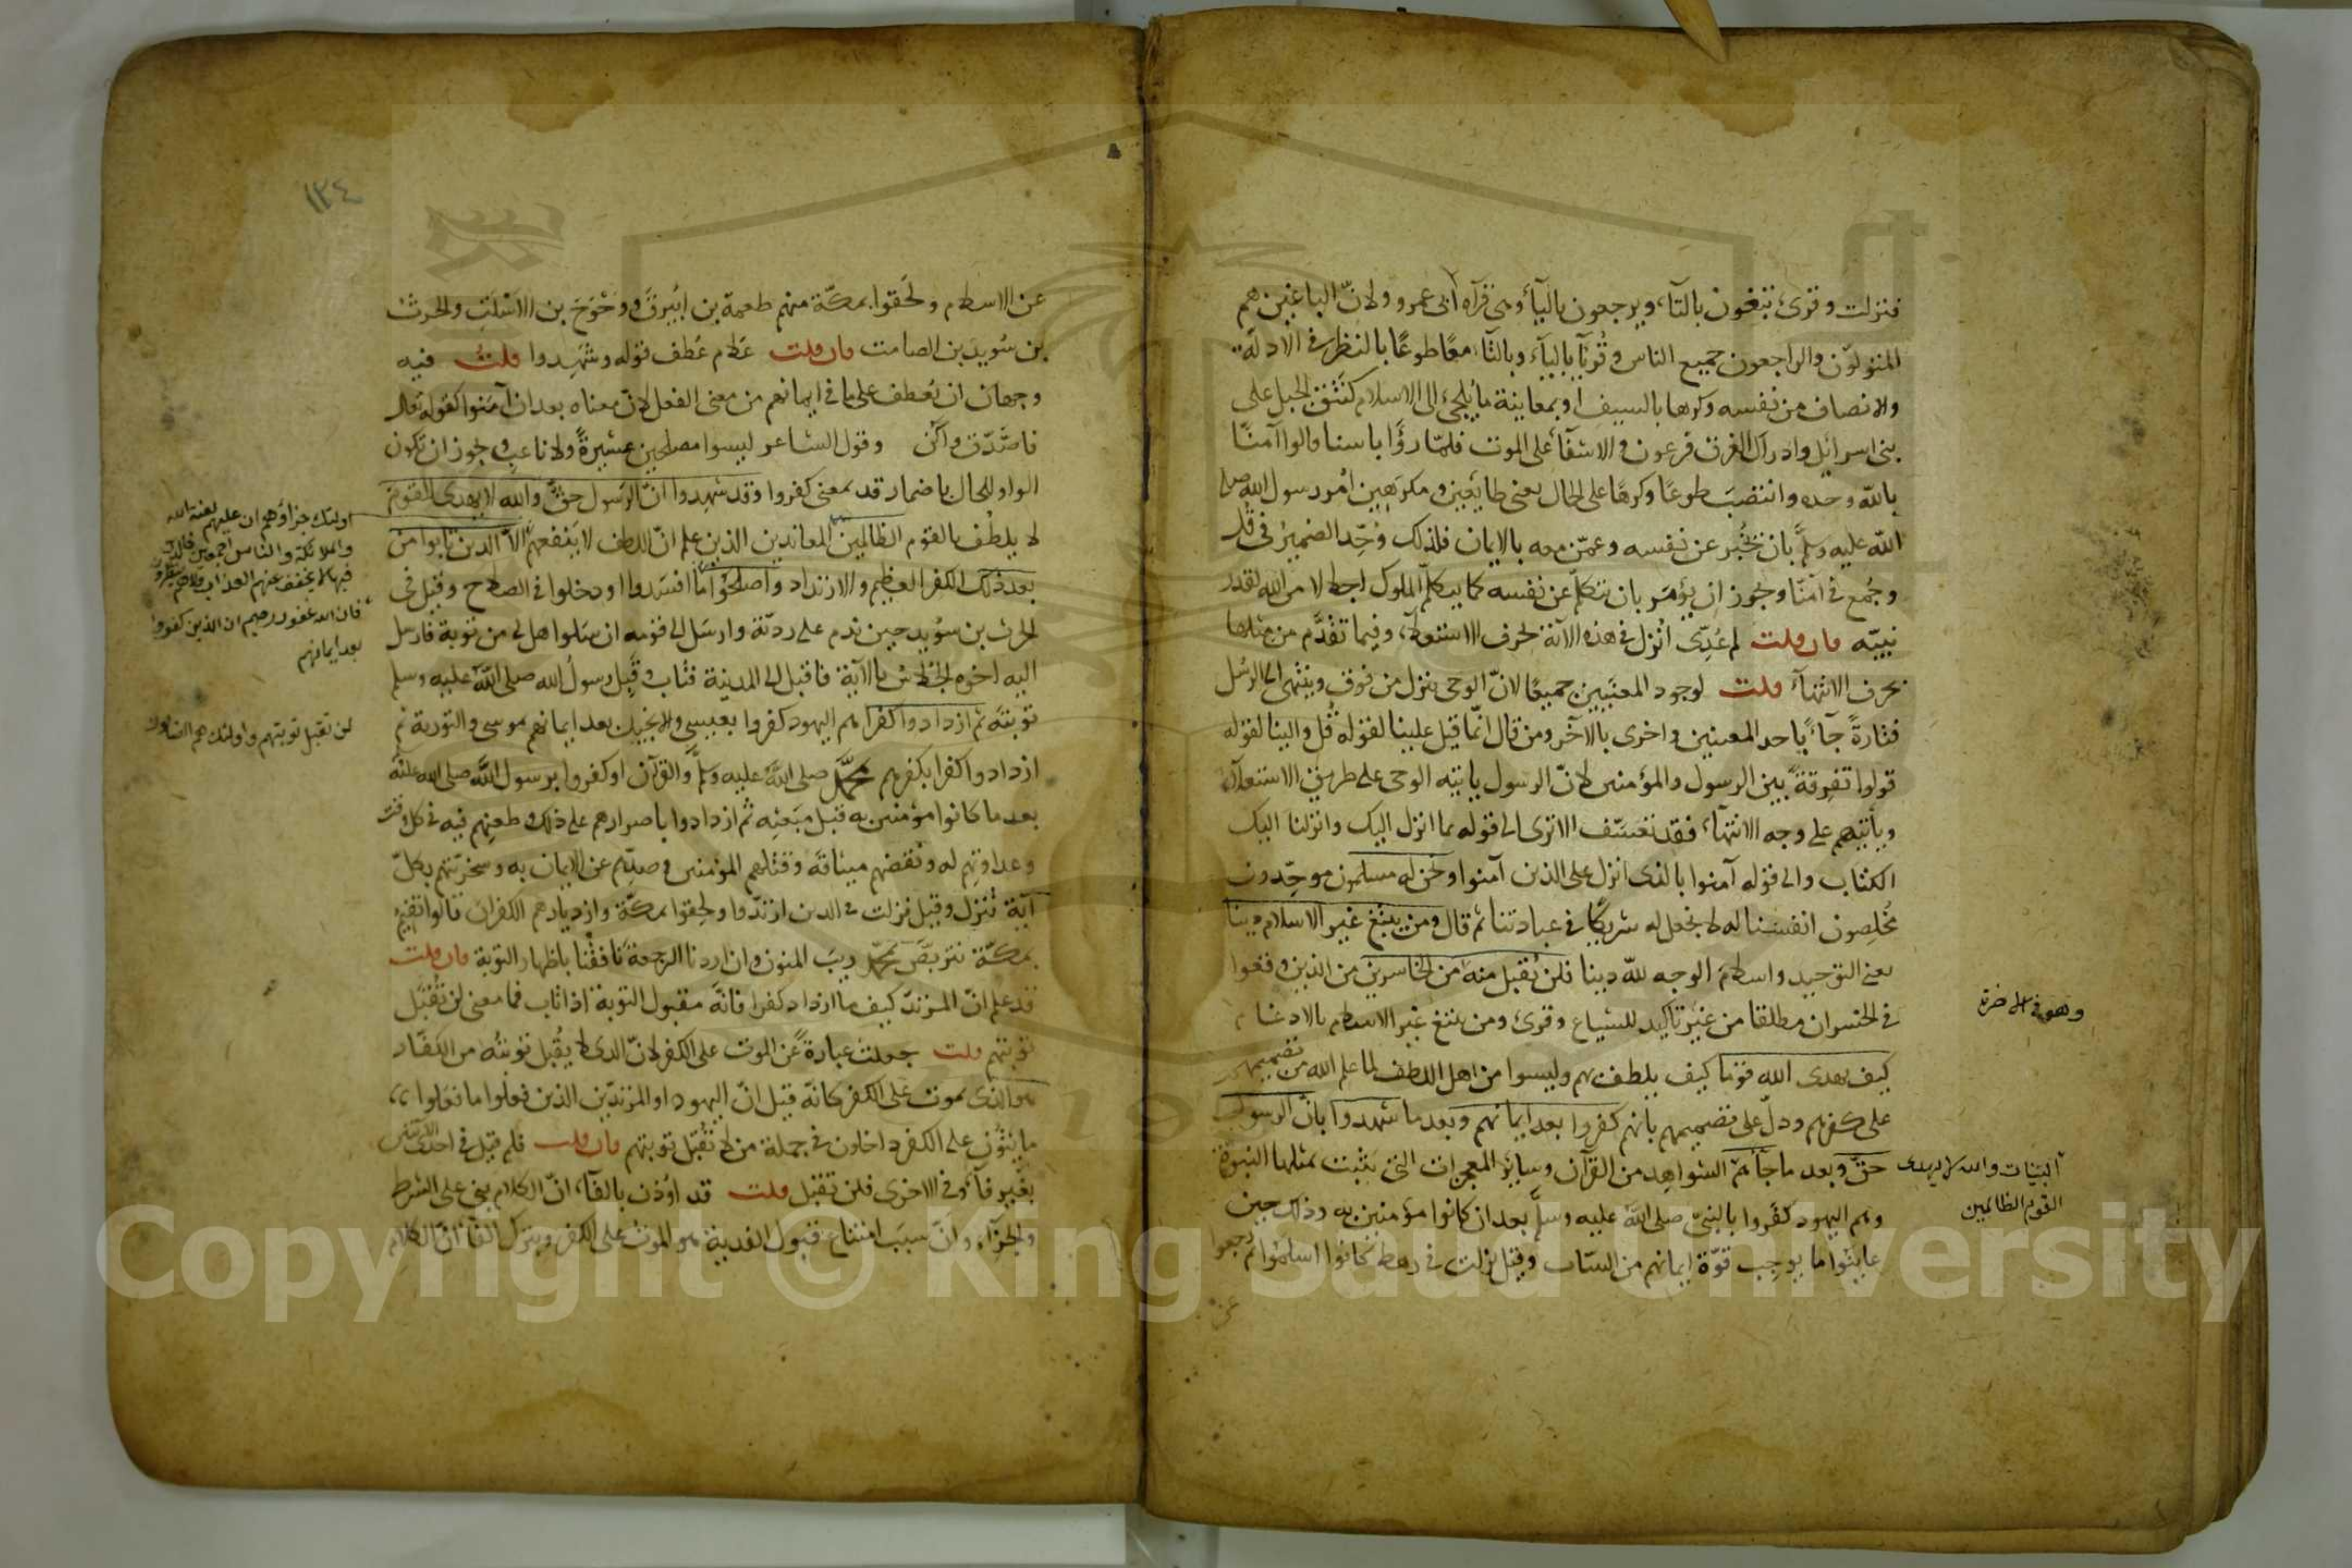 فنزلت وقرئ تبغون بالتآء ويرجعون باليآء وهى قرآه ابى عمرو ولان الباغين هم
المتولّون والراجعون جميع الناس وقُرئا باليآء وبالتآء معًا طوعًا بالنظر فى الادلة
والانصاف من نفسه وكرها بالسيف او بمعاينة ما يُلجئ الى الاسلام كنَتْق الجبل على
بنى اسرائيل وادراك الغرق فرعون والاشفآء على الموت فلمّا رأوا باسنا قالوا آمنّا
بالله وحده وانتصب طوعًا وكرهًا على الحال بمعنى طايعين ومكرهين اُمر رسول الله صلى
الله عليه وسلم بان يُخبر عن نفسه وعمّن معه بالايمان فلذلك وُحّد الضمير فى قل
وجُمع فى آمنّا ويجوز ان يؤمر بان يتكلّم عن نفسه كما يتكلّم الملوك اجلالا من الله لقدر
نبيّه فان قلت لم عُدّى اُنزل فى هذه الآية بحرف الاستعلآء وفيما تقدّم من مثلها
بحرف الانتهآء قلت لوجود المعنيين جميعًا لانّ الوحى ينزل من فوق وينتهى الى الرسل
فتارةً جآء باحد المعنيين واخرى بالآخر ومن قال انّما قيل علينا لقوله قُل والينا لقوله
قولوا تفرقةً بين الرسول والمؤمنين لانّ الرسول ياتيه الوحى على طريق الاستعلآء
ويأتيهم على وجه الانتهآء فقد تعسّف الا ترى الى قوله بما انزل اليك وانزلنا اليك
الكتاب والى قوله آمنوا بالذى انزل على الذين آمنوا ونحن له مسلمون موحّدون
مُخلصون انفسنا له لا نجعل له شريكًا فى عبادتنا ثم قال ومن يبتغ غير الاسلام دينا
يعنى التوحيد واسلام الوجه لله دينا فلن يُقبل منه من الخاسرين من الذين وقعوا
فى الخسران مطلقا من غير تاكيد للشياع وقرئ ومن يبتغ غير الاسلام بالادغام
كيف يهدى الله قوما كيف يلطف بهم وليسوا من اهل اللطف لما علم الله من تصميمهم
على كفرهم ودلّ على تصميمهم بانهم كفروا بعد ايمانهم وبعد ما شهدوا بانّ الرسول
حقّ وبعد ما جآءتهم الشواهد من القرآن وساير المعجزات التى يثبت بمثلها النبوة
وهم اليهود كفروا بالنبىّ صلى الله عليه وسلم بعد ان كانوا مؤمنين به وذلك حين
عاينوا ما يوجب قوّة ايمانهم من البينات وقيل نزلت فى رهط كانوا اسلموا ثم رجعوا
عن
وهو فى الآخرة
البينات والله لا يهدى
القوم الظالمين
١٣٤
عن الاسلام ولحقوا بمكّة منهم طعمة بن اُبيرق ووَحْوَح بن الاسلت والحرث
بن سُويد بن الصامت فان قلت علام عُطف قوله وشهدوا قلت فيه
وجهان ان يُعطف على ما فى ايمانهم من معنى الفعل لانّ معناه بعد ان آمنوا كقوله تعالى
فاصّدّق واكن وقول الشاعر ليسوا مصلحين عشيرةً ولا ناعب ويجوز ان تكون
الواو للحال باضمار قد بمعنى كفروا وقد شهدوا انّ الرسول حقّ والله لا يهدى القوم
لا يلطُف بالقوم الظالمين المعاندين الذين علم انّ اللطف لا ينفعهم الّا الذين تابوا من
بعد ذلك الكفر العظيم والارتداد واصلحوا ما افسدوا او دخلوا فى الصلاح وقيل فى
الحرث بن سُويد حين ندم على ردّته وارسل الى قومه ان سلوا هل لى من توبة فارسل
اليه اخوه الجُلاس بالآية فاقبل الى المدينة فتاب وقَبِل رسول الله صلى الله عليه وسلم
توبته ثم ازدادوا كفرا هم اليهود كفروا بعيسى والانجيل بعد ايمانهم بموسى والتورية ثم
ازدادوا كفرا بكفرهم بمحمّد صلى الله عليه وسلم والقرآن او كفروا برسول الله صلى الله عليه
بعد ما كانوا مؤمنين به قبل مبعثه ثم ازدادوا باصرارهم على ذلك وطعنهم فيه فى كل وقت
وعداوتهم له ونقضهم ميثاقه وقتلهم المؤمنين وصدّهم عن الايمان به وسخريّتهم بكلّ
آية تُنزل وقيل نزلت فى الذين ارتدّوا ولحقوا بمكّة وازديادهم الكفر ان قالوا نقيم
بمكّة نتربّص بمحمّد ريب المنون وان اردنا الرجعة نافقنا باظهار التوبة فان قلت
قد علم انّ المرتدّ كيف ما ازداد كفرا فانّه مقبول التوبة اذا تاب فما معنى لن تُقبل
توبتهم قلت جعلت عبارةً عن الموت على الكفر لانّ الذى لا يُقبل توبته من الكفّار
هو الذى يموت على الكفر كانّه قيل انّ اليهود او المرتدّين الذين فعلوا ما فعلوا
مايتون على الكفر داخلون فى جملة من لا تُقبل توبتهم فان قلت فلم قيل فى احدى الآيتين
بغير فآء وفى الاخرى فلن تقبل قلت قد اوُذن بالفآء انّ الكلام بنى على الشرط
والجزآء وانّ سبب امتناع قبول الفدية هو الموت على الكفر وبترك الفآء انّ الكلام
اولئك جزاؤهم ان عليهم لعنة الله
والملائكة والناس اجمعين خالدين
فيها لا يخفف عنهم العذاب ولا هم ينظرون
فان الله غفور رحيم ان الذين كفروا
بعد ايمانهم
لن تقبل توبتهم واولئك هم الضالون
Copyright © King Saud University